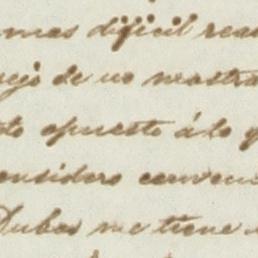 mas dificil rea
sejo de no mostra
to opuesto á lo q
onsidero conven
Dubos me tiene